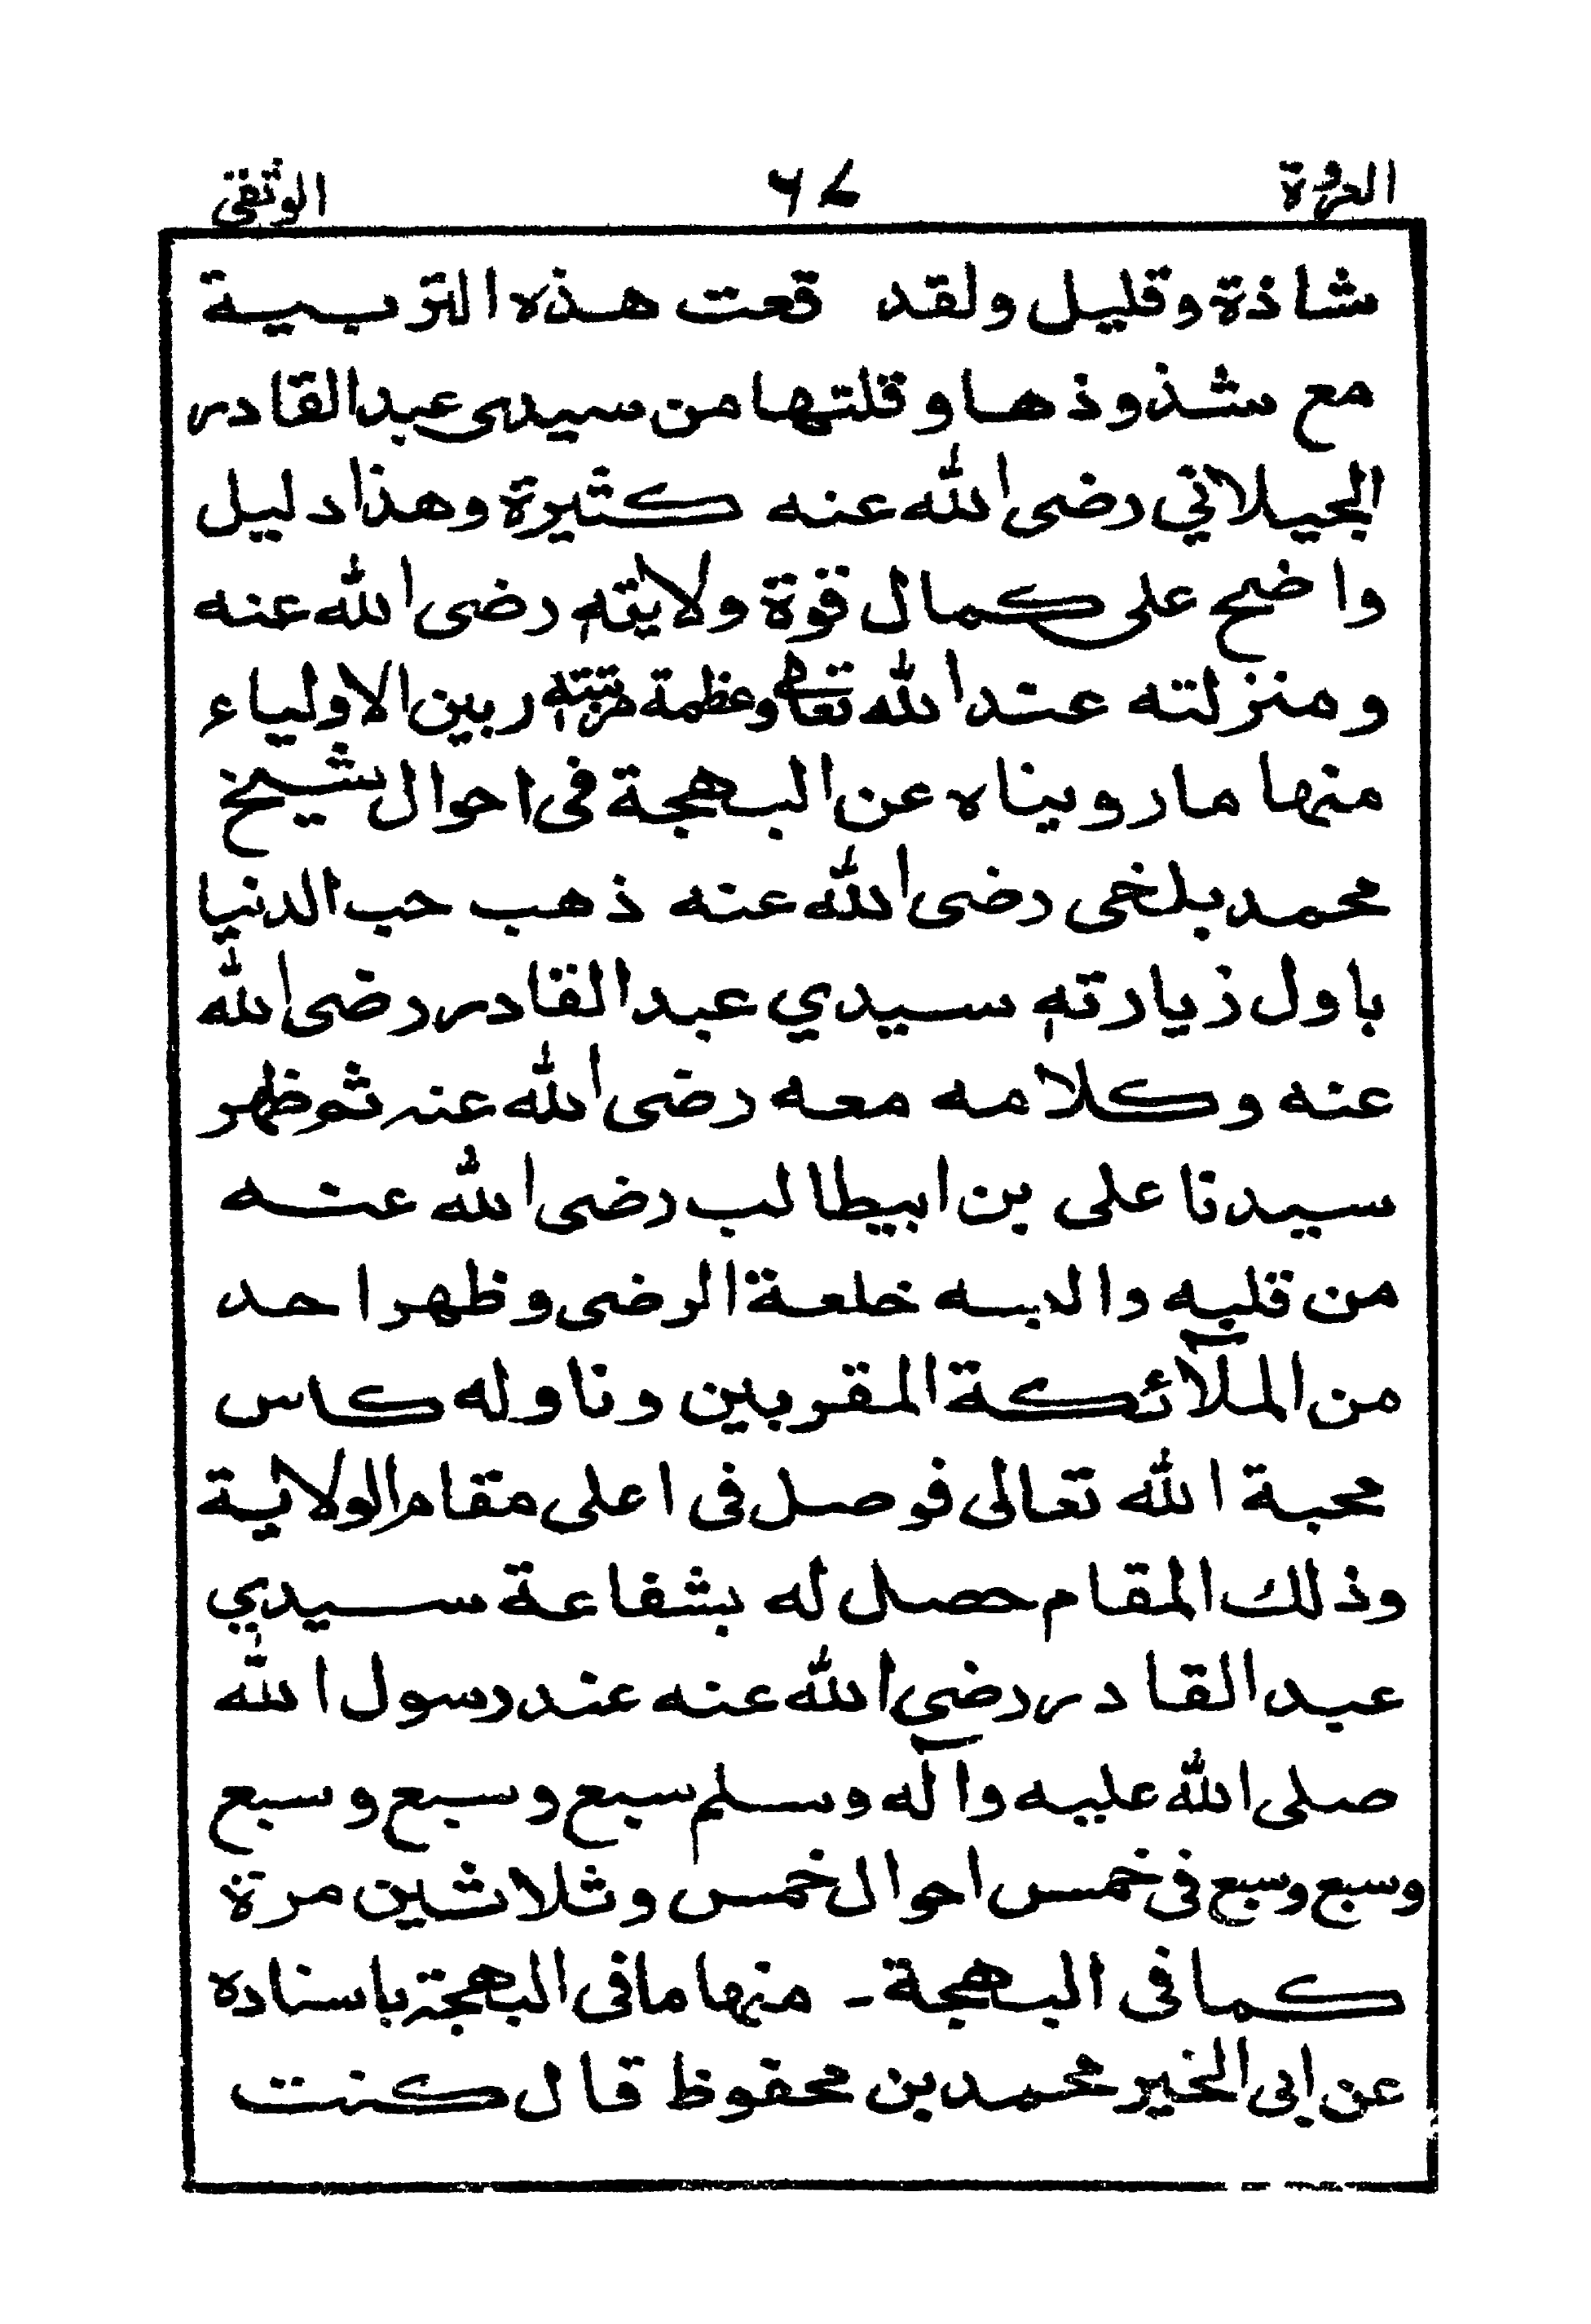 العروة ٦٧ الوثقى
شاذة وقليل ولقد قعت هذه التربية
مع شذوذها وقلتها من سيدى عبد القادر
الجيلاني رضى الله عنه كثيرة وهذا دليل
واضح على كمال قوة ولايته رضى الله عنه
ومنزلته عند الله تعالى وعظمة مرتبته ربين الاولياء
منها ما رويناه عن البهجة فى احوال شيخ
محمد بلخى رضى الله عنه ذهب حب الدنيا
باول زيارته سيدي عبد القادر رضى الله
عنه وكلامه معه رضى الله عنه ثم ظهر
سيدنا على بن ابيطالب رضى الله عنه
من قلبه والبسه خلعة الرضى وظهر احد
من الملآئكة المقربين وناوله كاس
محبة الله تعالى فوصل فى اعلى مقام الولاية
وذلك المقام حصل له بشفاعة سيدي
عبد القادر رضى الله عنه عند رسول الله
صلى الله عليه وآله وسلم سبع وسبع وسبع
وسبع وسبع فى خمس احوال خمس وثلاثين مرة
كما فى البهجة - منها ما فى البهجة باسناده
عن ابى الخير محمد بن محقوظ قال كنت